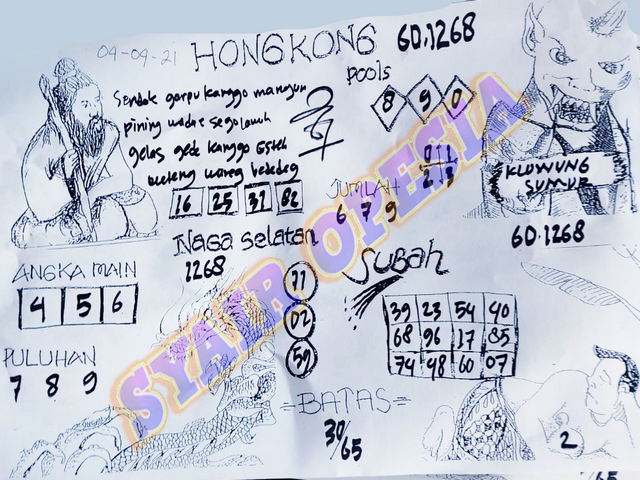 04-04-21
HONGKONG
60.1268
Pools
8 9 0
Sendok garpu kanggo mangan
piring wadae sego lawuh
gelas gede kanggo Esteh
weteng wareg
16 25 31 82
JUMLAH
6 7 9
01
23
KLUWUNG
SUMUR
60.1268
NAGA Selatan
1268
ANGKA MAIN
4 5 6
PULUHAN
7 8 9
71
02
59
SUBAH
39 23 54 40
68 96 17 85
74 48 60 07
=BATAS=
30/65
2
/65
SYAIR OPESIA